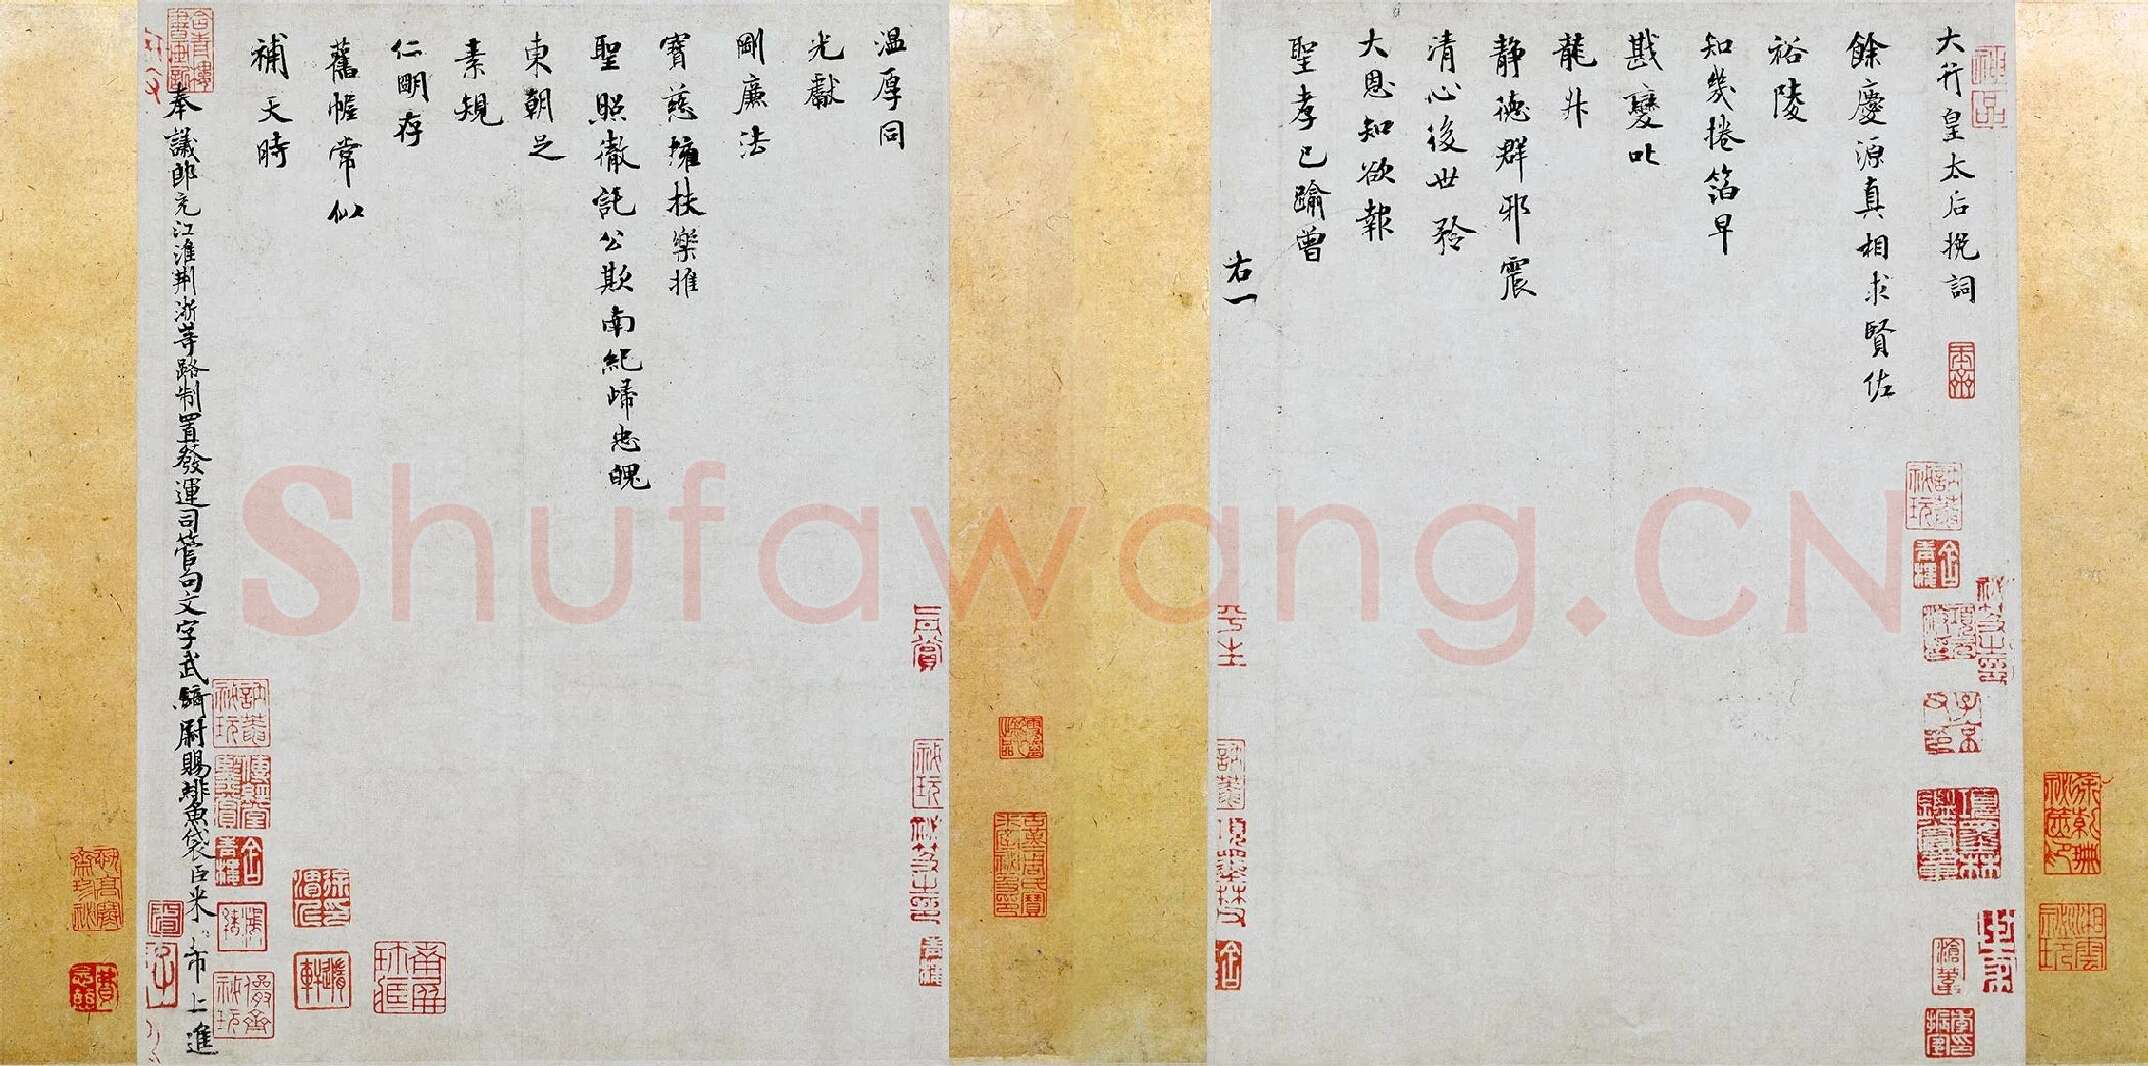 大行皇太后挽詞
餘慶源真相求賢佐
裕陵
知幾捲箔早
戡變叱
龍升
静德群邪震
清心後世矜
大恩知欲報
聖孝已踰曾
右一
温厚同
光獻
剛廉法
寶慈擁扶樂推
聖照徹託公欺南紀歸忠魄
東朝足
素規
仁眀存
舊幄常似
補天時
奉議郎充江淮荆浙等路制置發運司管句文字武騎尉賜緋魚袋臣米芾上進
Shufawang.CN